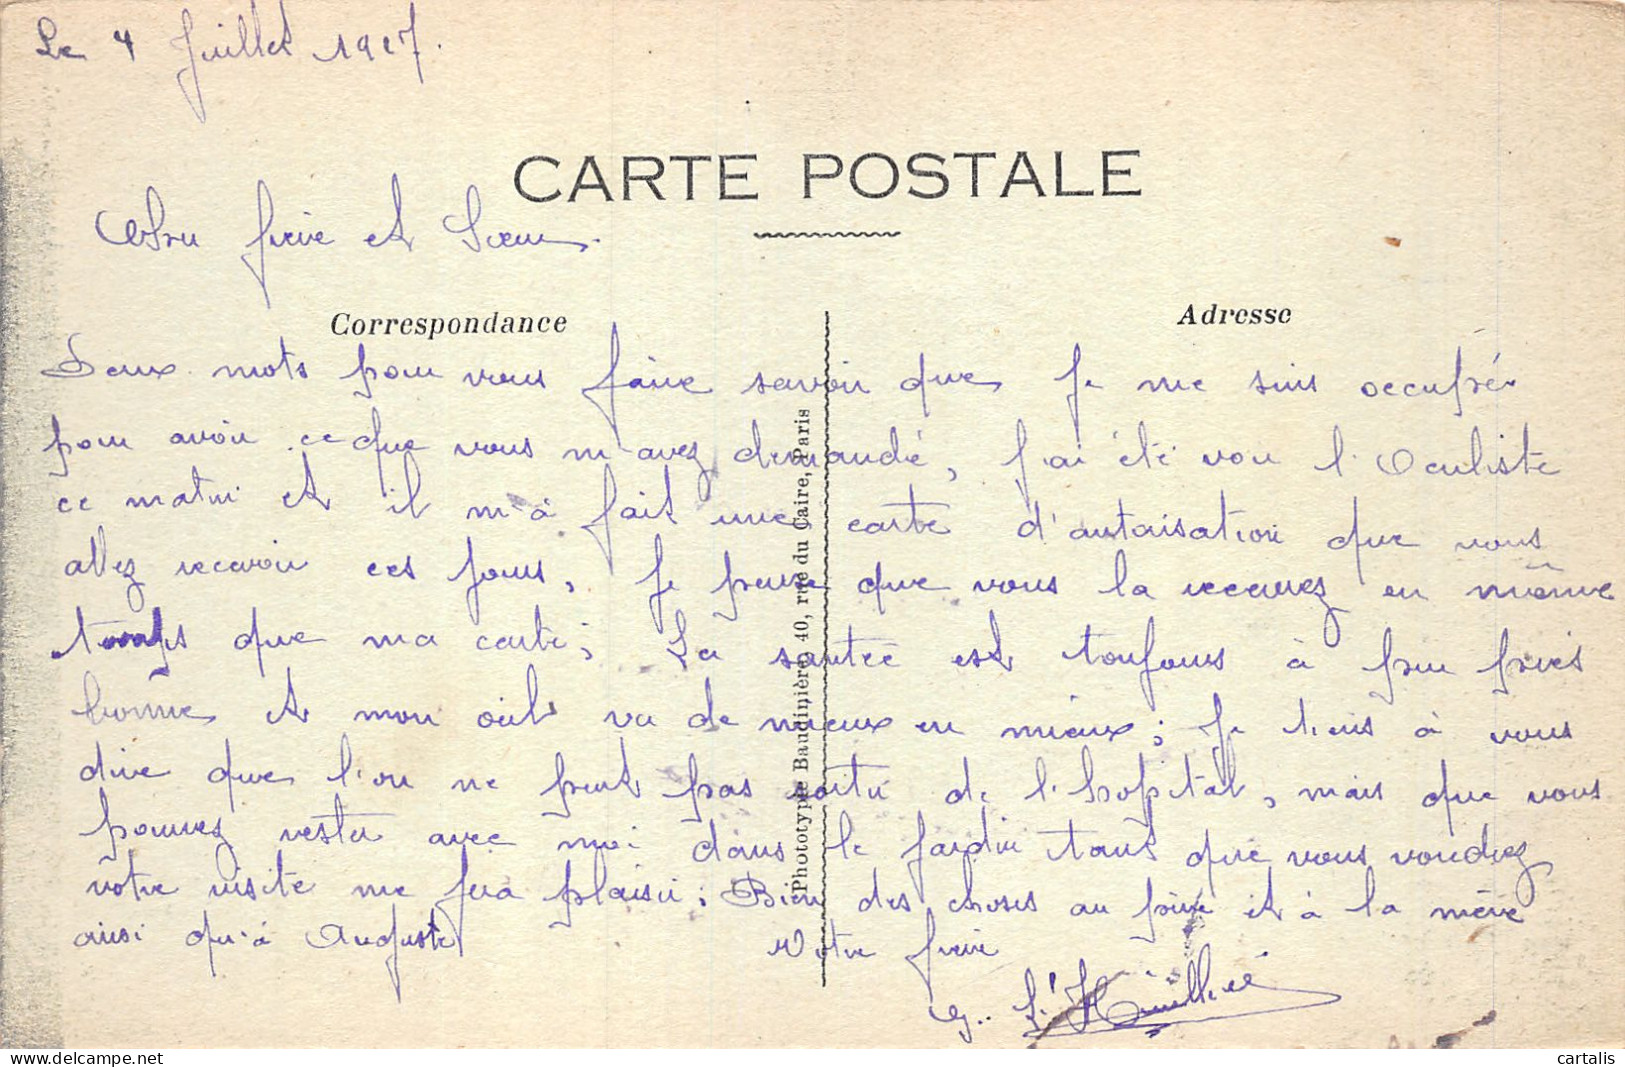 Le 4 Juillet 1917.
CARTE POSTALE
frère et Sœur.
Correspondance
Adresse
Deux mots pour vous faire savoir que Je me suis occupé
pour avoir ce que vous m'avez demandé, J'ai été voir l'Oculiste
ce matin et il m'a fait une carte d'autorisation que vous
allez recevoir ces jours, Je pense que vous la recevrez en même
temps que ma carte; La santée est toujours à peu près
bonne et mon œil va de mieux en mieux; Je tiens à vous
dire que l'on ne peut pas sortir de l'hopital, mais que vous
pouvez rester avec moi dans le jardin tant que vous voudrez
votre visite me fera plaisir; Bien des choses au père et à la mère
ainsi qu'à Auguste
Votre frère
G. L'Huillier
Phototypie Baudinière, 40, rue du Caire, Paris
cartalis